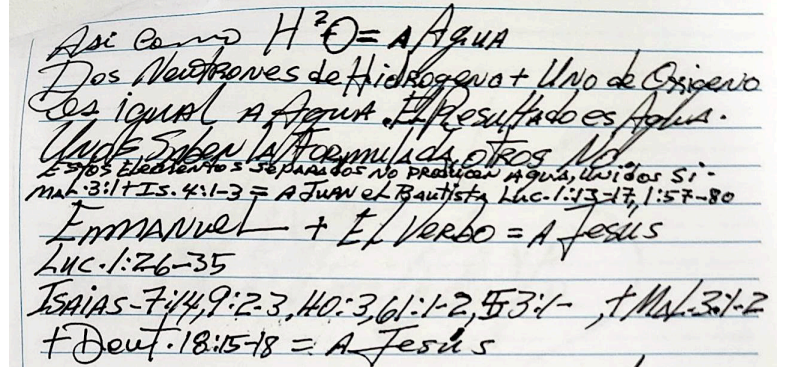 Asi como H²O = a Agua
Dos Neutrones de Hidrogeno + Uno de Oxigeno
es igual a Agua. El Resultado es Agua.
Unos Saben la Formulada, otros No.
Estos Elementos separados no producen agua, unidos si.
Mal.3:1 + Is. 4:1-3 = A Juan el Bautista Luc-1:13-17, 1:57-80
Emmanuel + El Verbo = a Jesús
Luc.1:26-35
Isaias-7:14, 9:2-3, 40:3, 61:1-2, 53:1- , + Mal-3:1-2
+ Deut. 18:15-18 = A Jesús